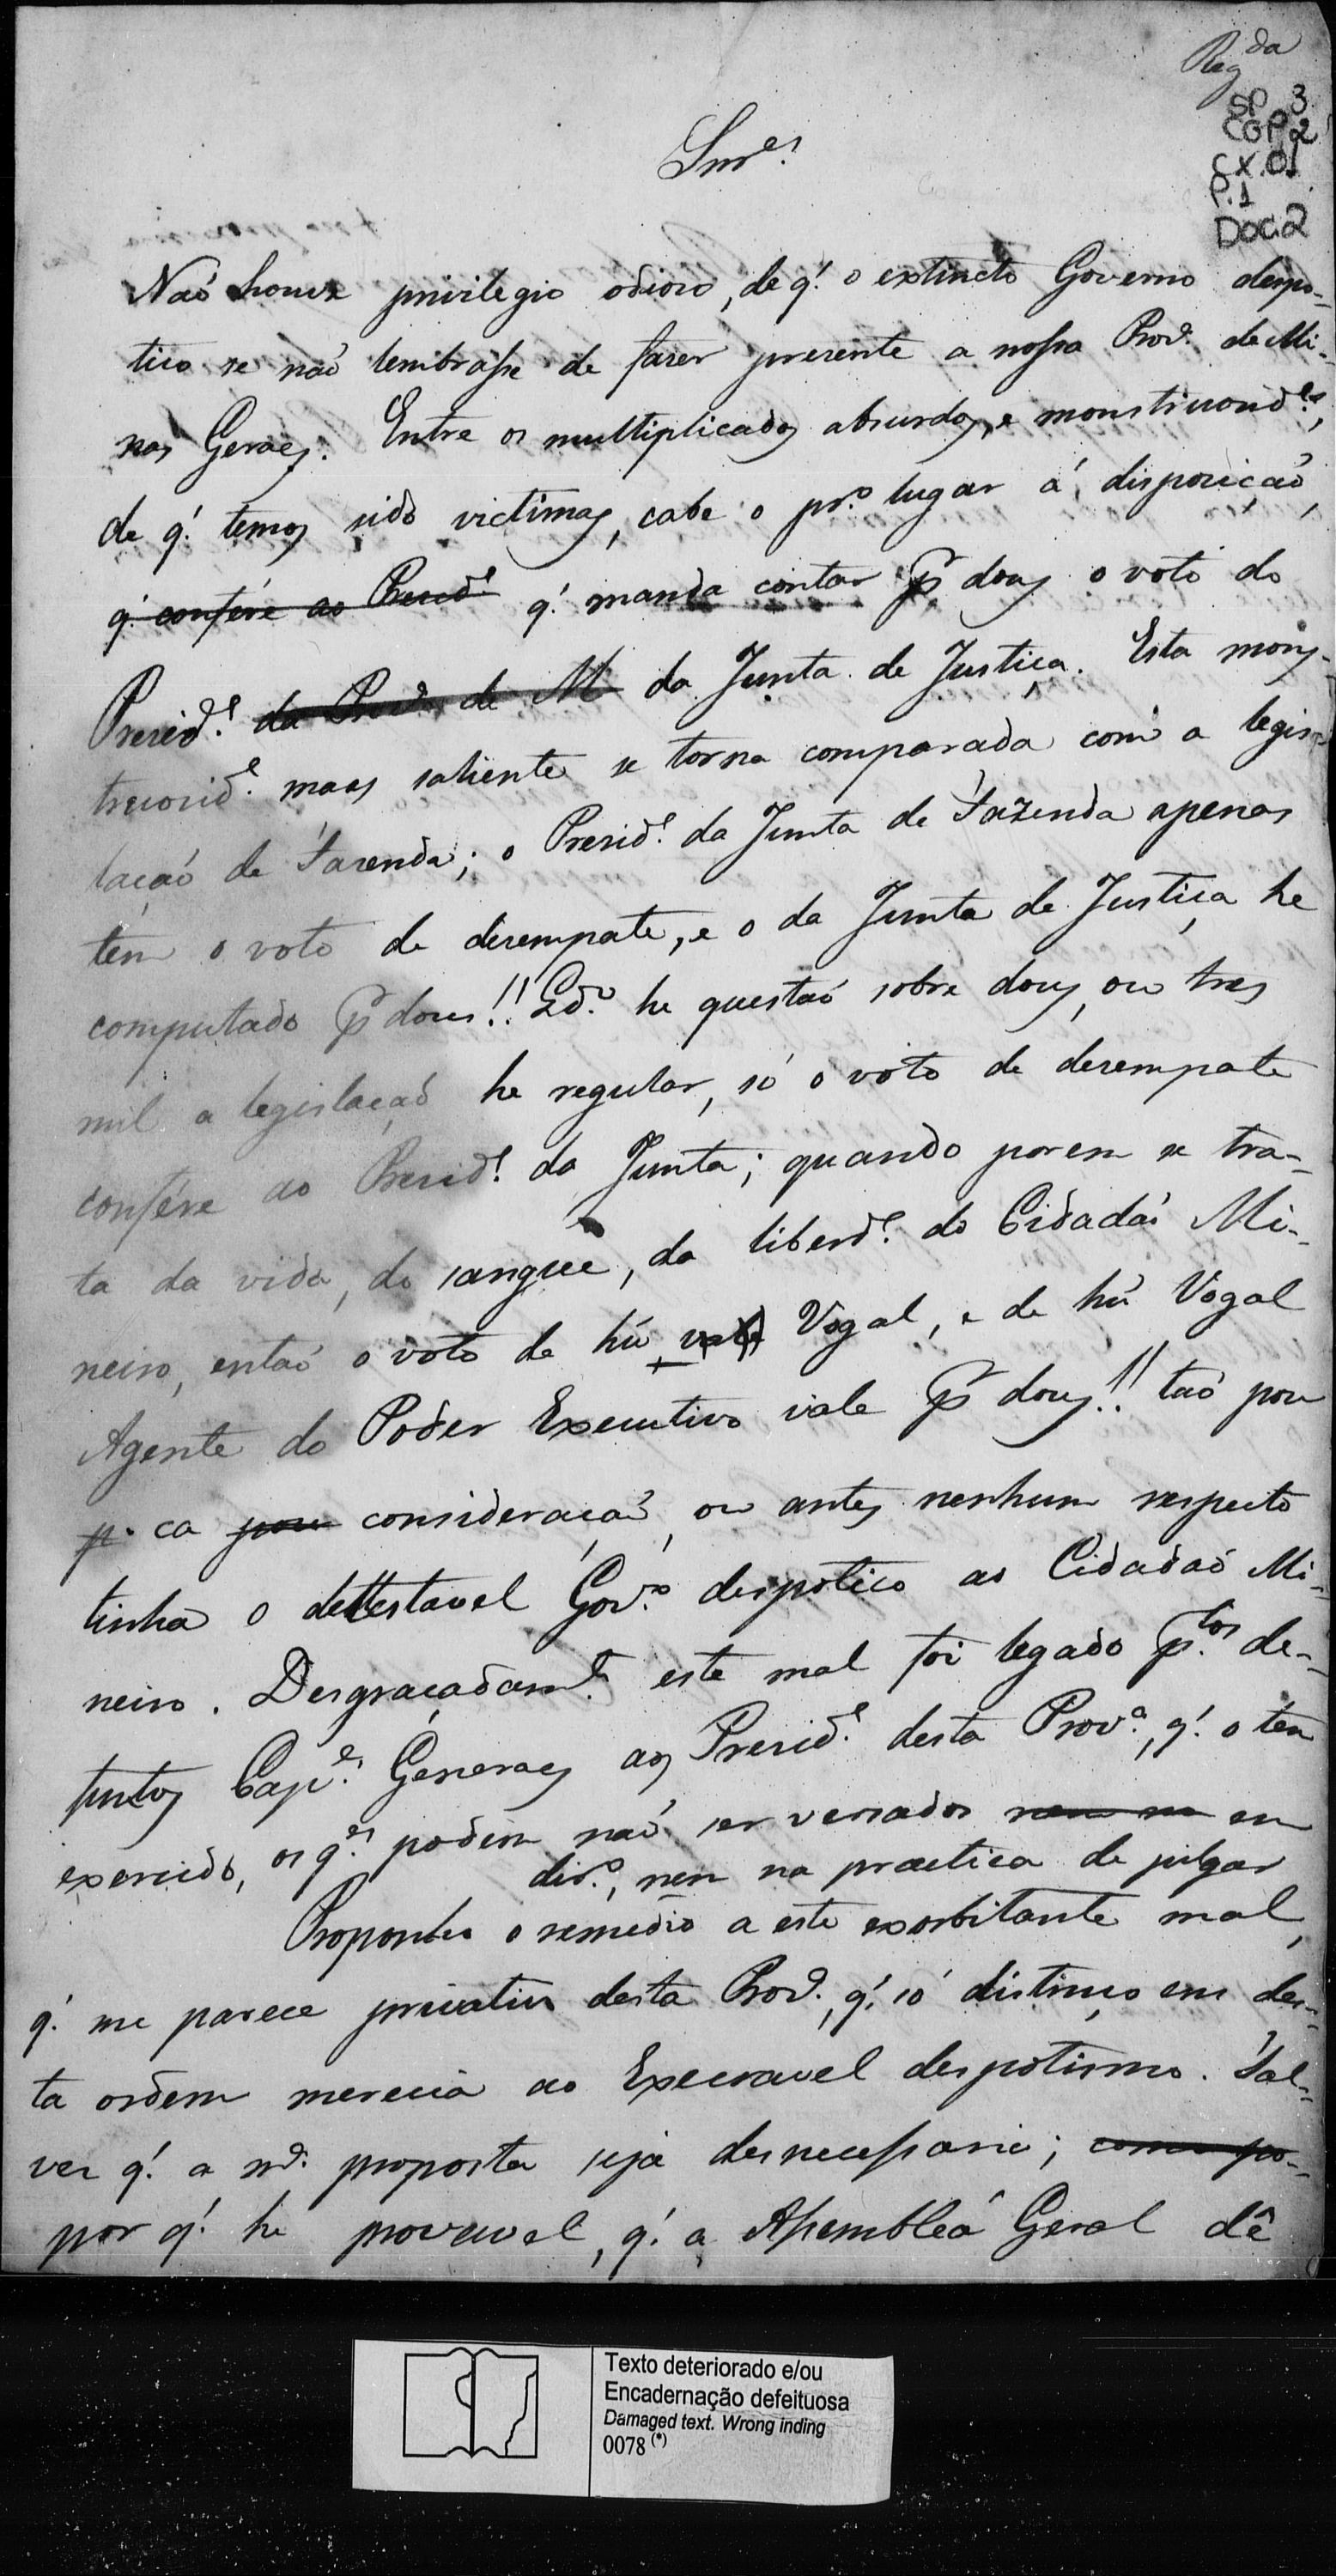 Reg.da
SP 3
CGP 2
CX.01
P.1
Doc.2
Snr.es
Naõ houve privilegio odioso, de q.' o extincto Governo despo-
tico se naõ lembrasse de fazer prezente a nossa Prov.a de Mi-
nas Geraes. Entre os multiplicados absurdos, e monstruosid.es,
de q.' temos sido victimas, cabe o pr.o lugar á disposiçaõ,
q.' confére ao Presid.e q.' manda contar p. dous o voto do
Presid.e da Prov.a de M da Junta de Justiça. Esta mons-
truosid.e mais saliente se torna comparada com a legis-
laçaõ de Fazenda; o Presid.e da Junta de Fazenda apenas
tem o voto de desempate, e o da Junta de Justiça he
computado p. dous!! Qd.o he questaõ sobre dous, ou tres
mil a legislaçaõ he regular, só o voto de desempate
confére ao Presid.e da Junta; quando porem se tra-
ta da vida, do sangue, da liberd.e do Cidadaõ Mi-
neiro, entaõ o voto de hũ Vogal, e de hũ Vogal
Agente do Poder Executivo vale p. dous!! taõ pou
p. ca pou consideraçaõ, ou antes nenhum respeito
tinha o dettestavel Gov.o despotico ao Cidadaõ Mi-
neiro. Desgraçadam.e este mal foi legado p.los de-
funtos Cap.es Generaes aos Presid.e desta Prov.a, q.' o tem
exercido, os q.es podem naõ ser versados nem na em
dir.o, nem na practica de julgar
Proponho o remedio a este exorbitante mal,
q.' me parece privativo desta Prov.a, q.' só distincções des-
ta ordem merecia ao Execravel despotismo. Tal-
vez q.' a m.a proposta seja desnecessaria; como po-
por q.' he provavel, q.' a Assemblea Geral dê
Texto deteriorado e/ou
Encadernação defeituosa
Damaged text. Wrong inding
0078 (*)